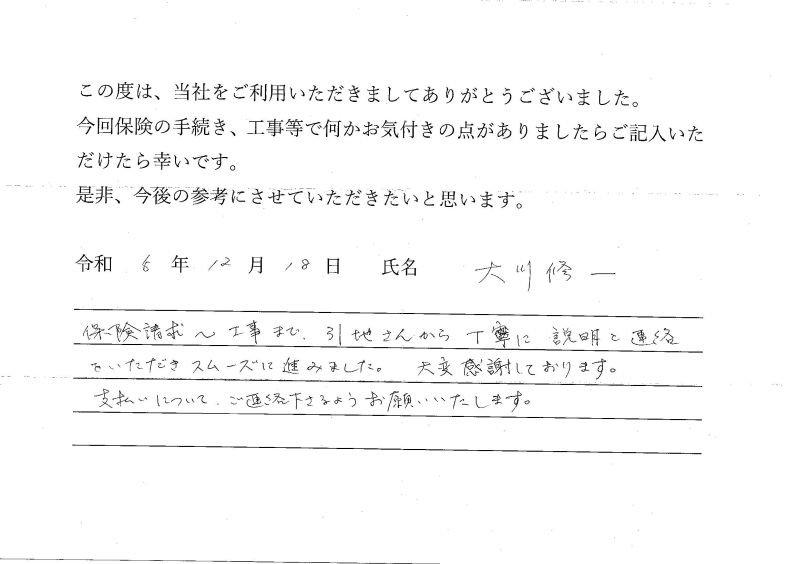 この度は、当社をご利用いただきましてありがとうございました。
今回保険の手続き、工事等で何かお気付きの点がありましたらご記入いた
だけたら幸いです。
是非、今後の参考にさせていただきたいと思います。
令和 6 年 12 月 18 日 氏名 大川修一
保険請求〜工事まで、引地さんから丁寧に説明と連絡
をいただきスムーズに進みました。 大変感謝しております。
支払いについて、ご連絡下さるようお願いいたします。